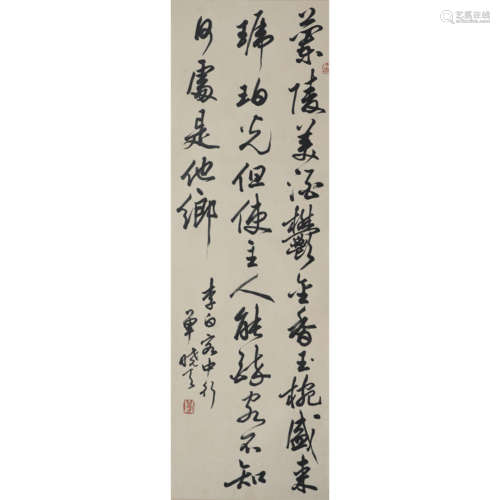 蘭陵美酒鬱金香玉椀盛来
琥珀光但使主人能醉客不知
何處是他鄉
李白客中行
單曉天
艺狐在线